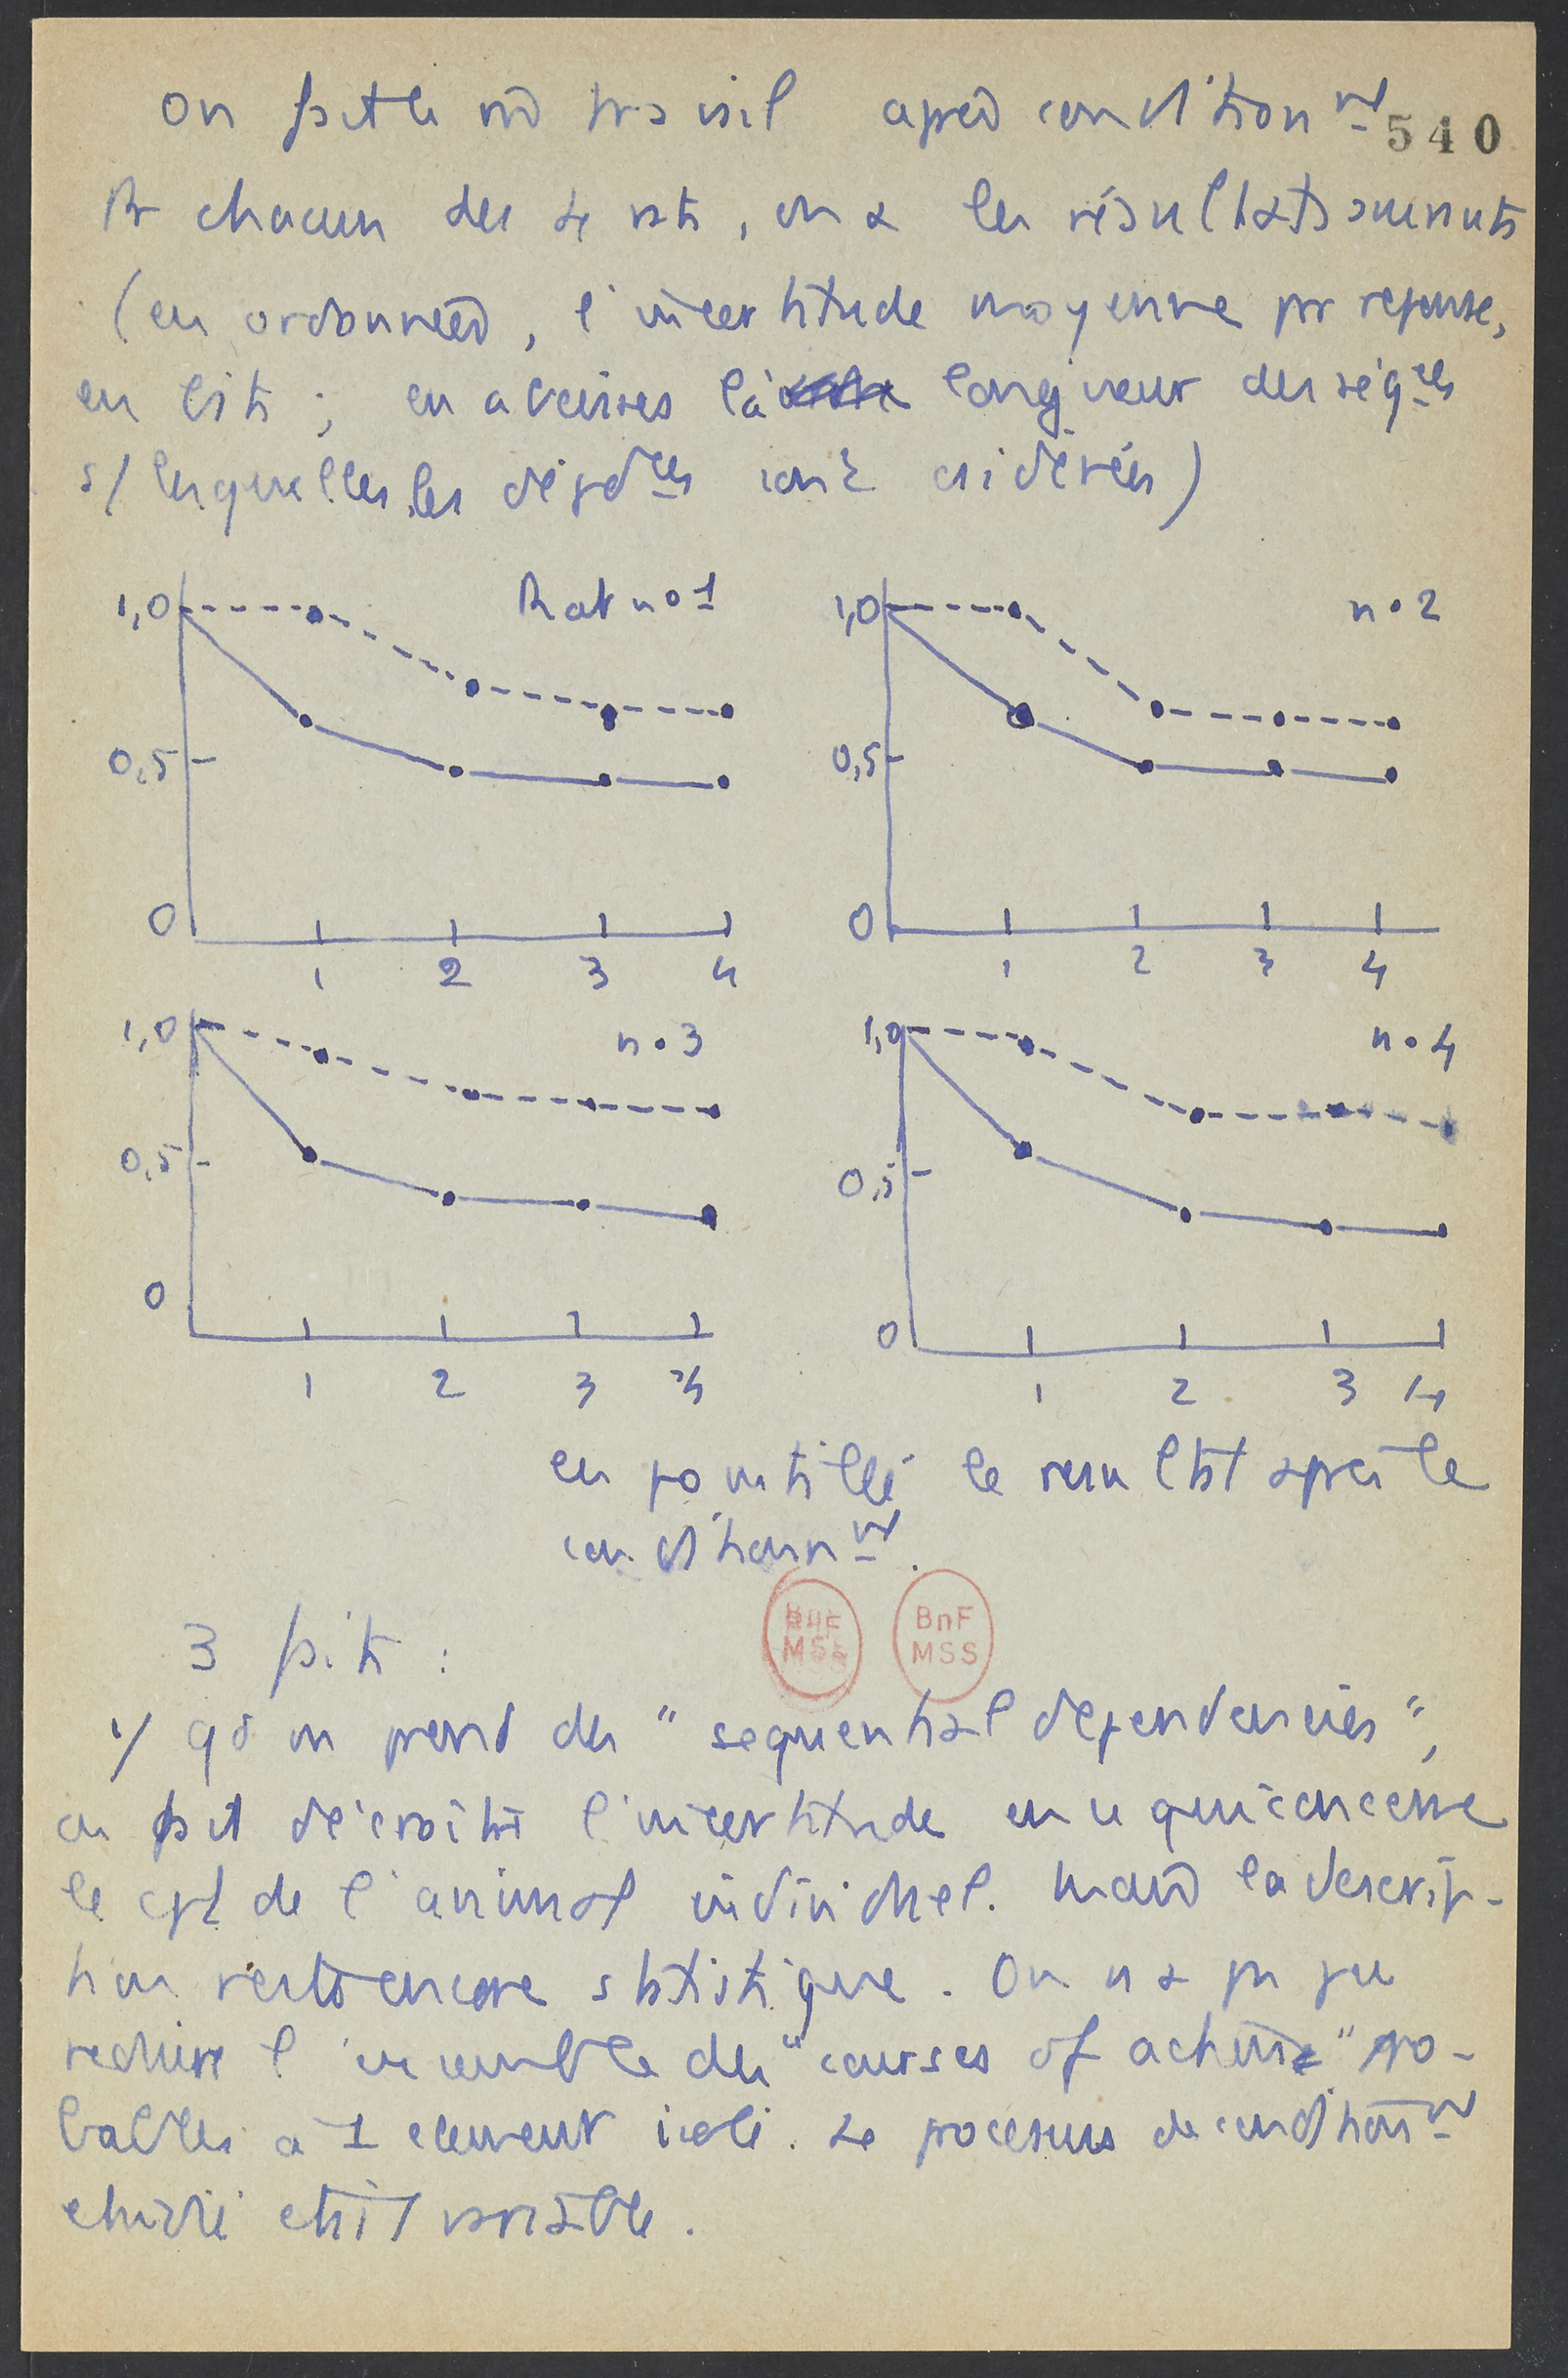 On fait le mê travail après condition<sup>nt</sup> 540
Pr chacun des 4 rats, on a les résultats suivants
(en ordonnées, l'incertitude moyenne par reponse,
en bits ; en abcisses la longueur des séq<sup>ces</sup>
s/ lesquelles les dépd<sup>ces</sup> sont csidérées)
1,0 Rat n° 1 1,0 n° 2
0,5 0,5
0 0
1 2 3 4 1 2 3 4
1,0 n° 3 1,0 n° 4
0,5 0,5
0 0
1 2 3 4 1 2 3 4
en pointillé le resultat après le
condition<sup>nt</sup>.
BnF MSS BnF MSS
3 faits :
1/ qd on prend des "sequential dependencies",
on fait décroître l'incertitude en ce qui concerne
le cpt de l'animal individuel. Mais la descrip-
tion reste encore statistique. On n'a pu
reduire l'ensemble des "courses of action" pro-
bables à 1 element isolé. Le processus de condition<sup>nt</sup>
etudié etait variable.